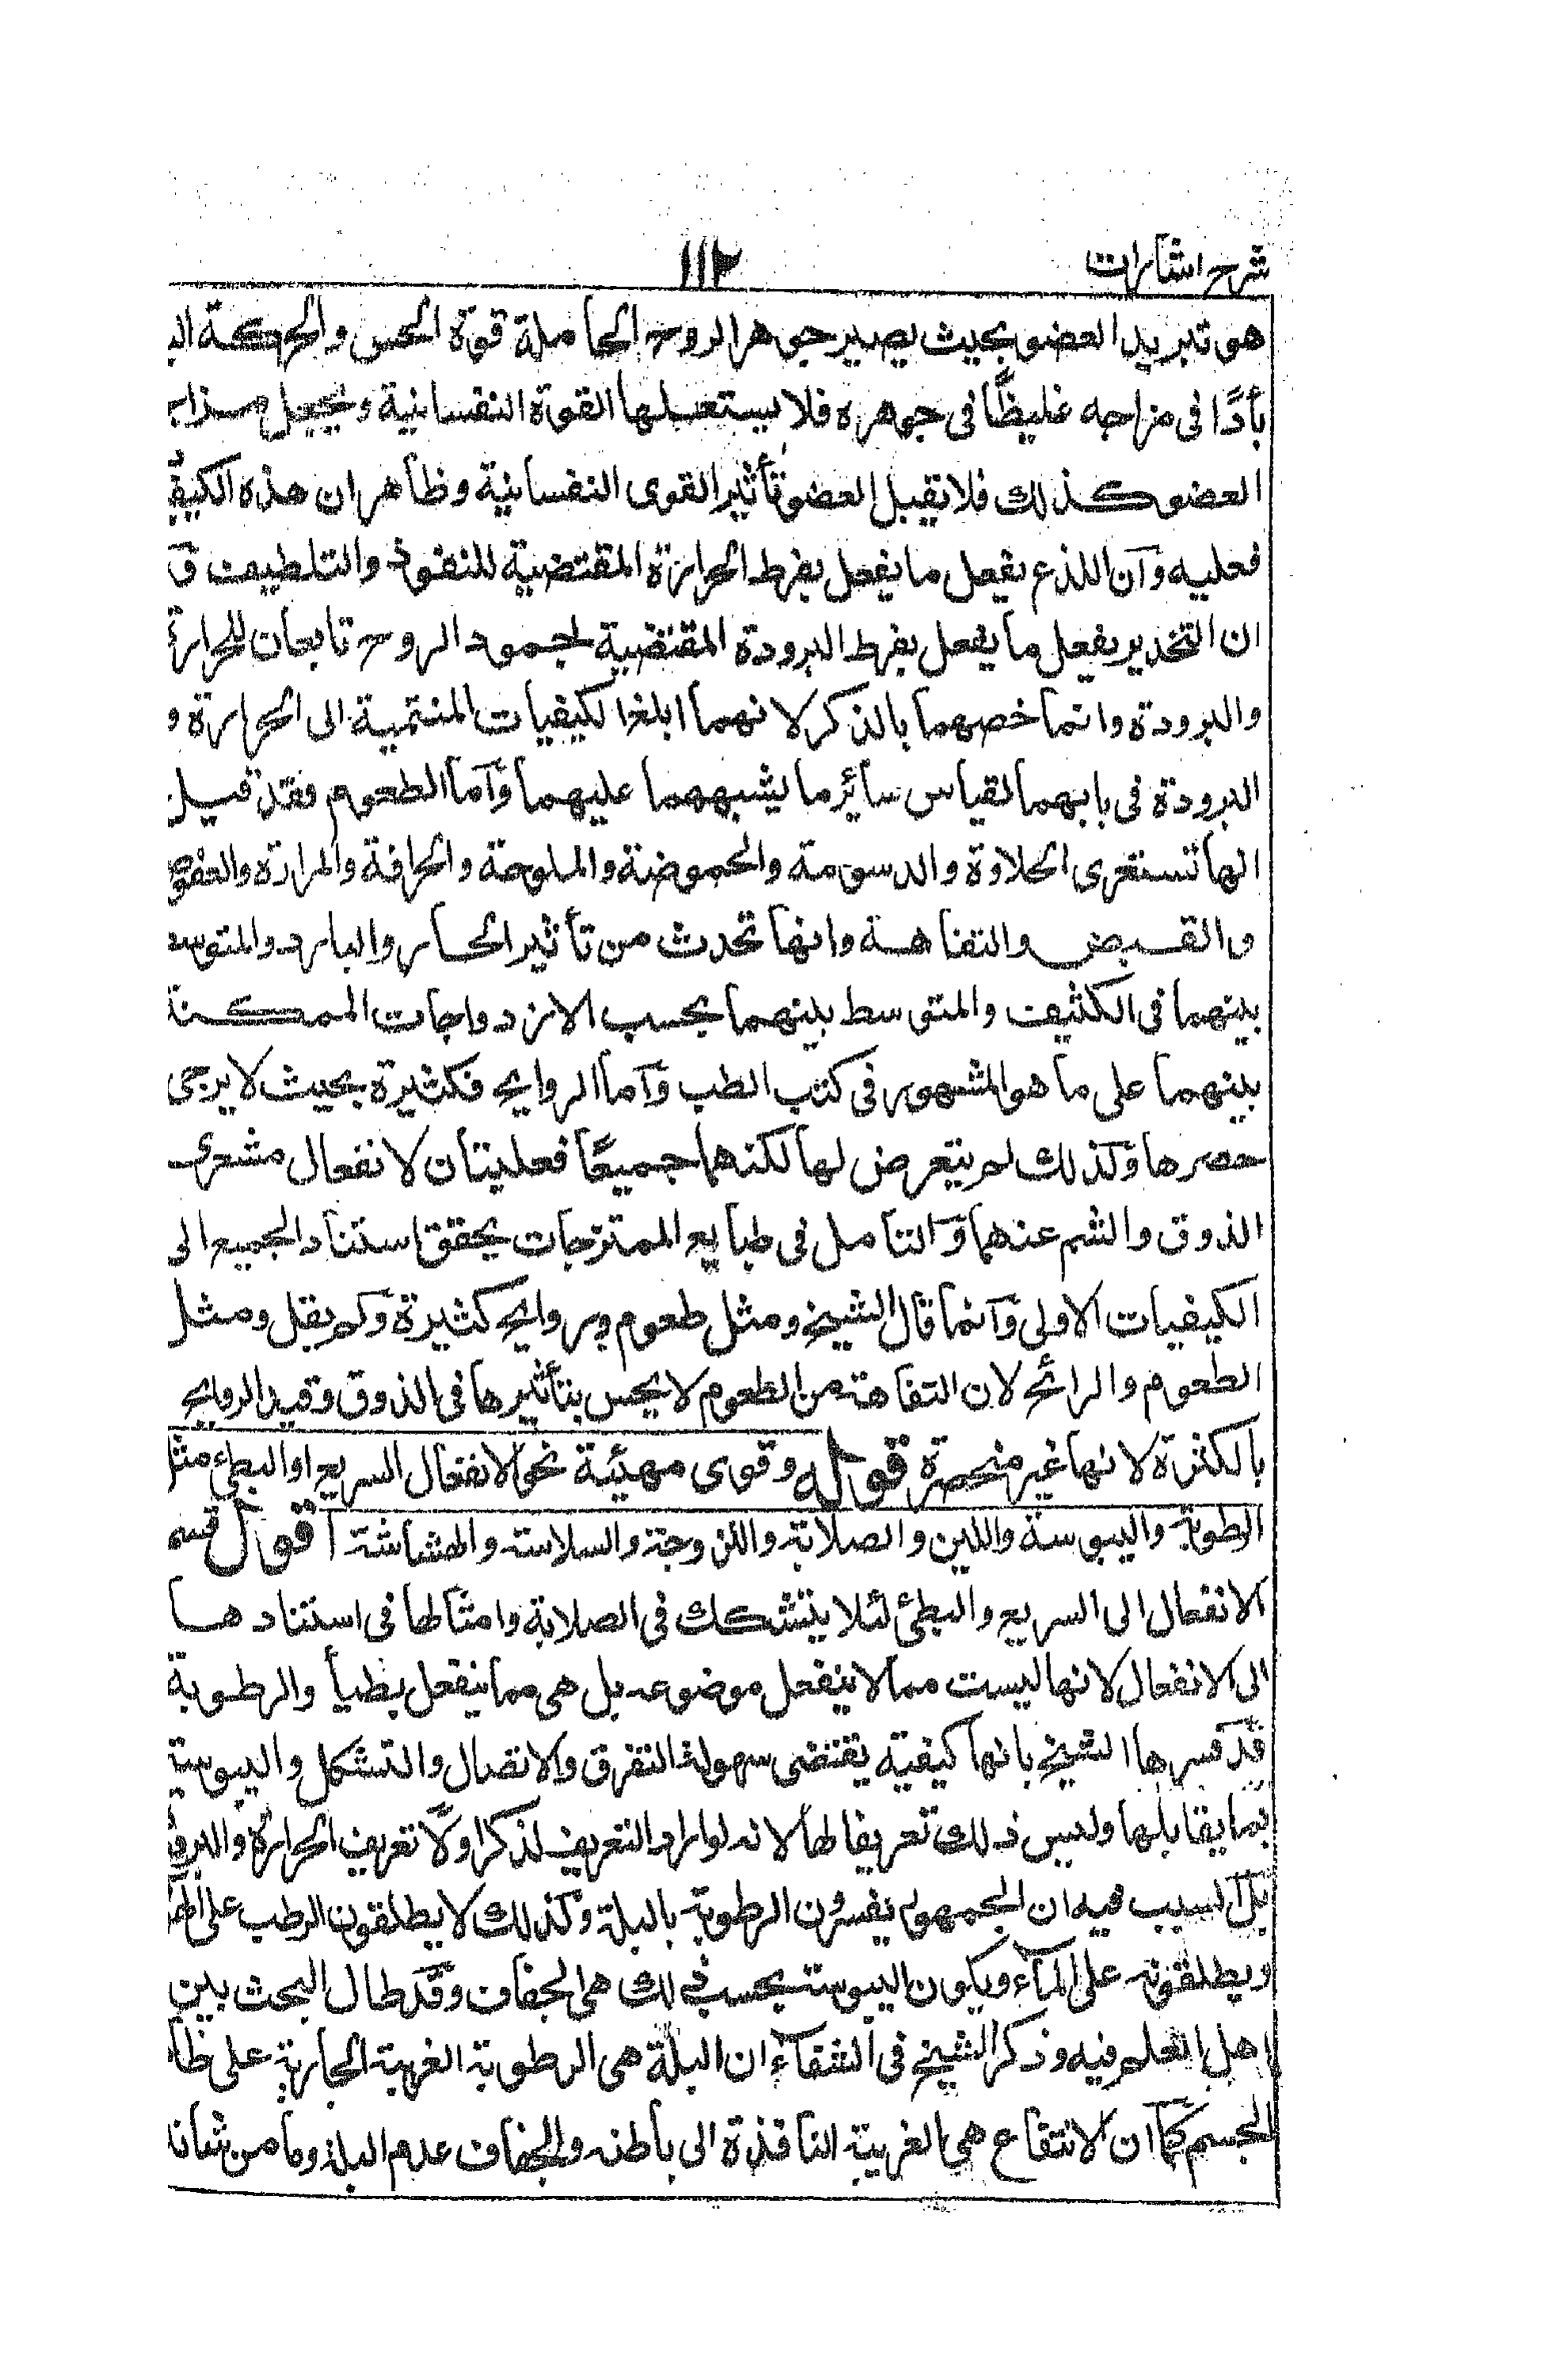 شرح اشارات ١١٢
هو تبريد العضو بحيث يصير جوهر الروح الحاملة قوة الحس والحركة
باردًا فى مزاجه غليظًا فى جوهره فلا يستعملها القوة النفسانية ويجعل مزاج
العضو كذلك فلا يقبل العضو تأثير القوى النفسانية وظاهر ان هذه الكيف
فعليه وآن اللذع يفعل ما يفعل بفرط الحرارة المقتضية للنفوذ والتلطيف و
ان التخدير يفعل ما يفعل بفرط البرودة المقتضية لجمود الروح تابعان للحرارة
والبرودة وانما خصهما بالذكر لانهما ابلغ الكيفيات المنتمية الى الحرارة و
البرودة فى بابهما لقياس سائر ما يشبههما عليهما وآما الطعوم فقد قيل
انها تسع هى الحلاوة والدسومة والحموضة والملوحة والحرافة والمرارة والعفوص
والقبض والتفاهة وانها تحدث من تأثير الحار والبارد والمتوسط
بينهما فى الكثيف والمتوسط بينهما بحسب الازدواجات الممكنة
بينهما على ما هو المشهور فى كتب الطب وآما الروايح فكثيرة بحيث لا يرجى
حصرها وكذلك لم يتعرض لها لكنهما جميعًا فعليتان لانفعال مشعرى
الذوق والشم عنهما وآلتامل فى طبايع الممتزجات يحقق استناد الجميع الى
الكيفيات الاولى وآنما قال الشيخ ومثل طعوم وروايح كثيرة ولم يقل ومثل
الطعوم والرائح لان التفاهة من الطعوم لا يحس بتأثيرها فى الذوق وقيد الروايح
بالكثرة لانها غير منحصرة قوله وقوى مهيئة نحو الانفعال السريع او البطئ مثل
الرطوبة واليبوسة واللين والصلابة واللزوجة والسلاسة والهشاشة اقول قسم
الانفعال الى السريع والبطئ لئلا يتشكك فى الصلابة وامثالها فى استنادها
الى الانفعال لانها ليست مما لا ينفعل موضوعه بل هى مما ينفعل بطيأ والرطوبة
قد فسرها الشيخ بانها كيفية يقتضى سهولة التفرق والاتصال والتشكل واليبوسة
بما يقابلها وليس ذلك تعريفا لها لانه لو اراد التعريف لذكر اولًا تعريف الحرارة والبرو
بل السبب فيه ان الجمهور يفسرون الرطوبة بالبلة وكذلك لا يطلقون الرطب على
ويطلقونه على المآء ويكون اليبوسة بحسب ذلك هى الجفاف وقد طال البحث بين
اهل العلم فيه وذكر الشيخ فى الشفآء ان البلة هى الرطوبة الغريبة الجارية على ظا
الجسم كما ان الانتقاع هى الغريبة النافذة الى باطنه والجفاف عدم البلة وما من شانه